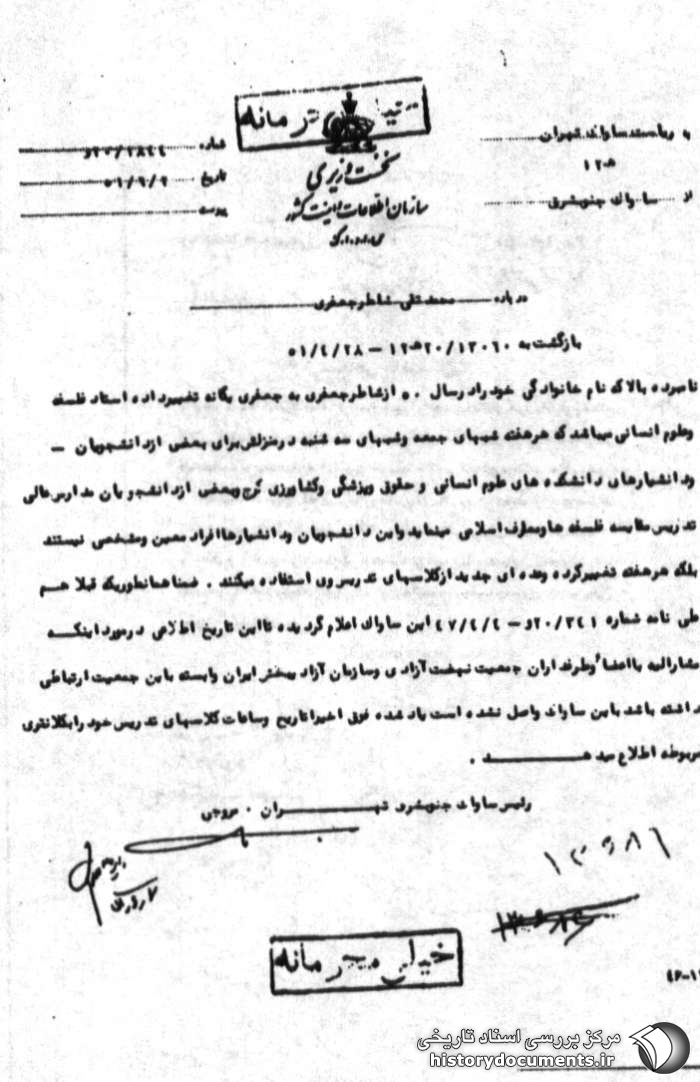 خیلی محرمانه
به ریاست ساواک تهران
۱۲ ھ
از ساواک جنوبشرق
نخست وزیری
سازمان اطلاعات و امنیت کشور
س.ا.و.ا.ک
شماره ۲۰/۲۸۴۴و
تاریخ ۵۱/۹/۲
پیوست
درباره محمد تقی شاطر جعفری
بازگشت به ۲۰/۱۳۰۶۰ ھ۱۲ – ۵۱/۴/۲۸
نامبرده بالا که نام خانوادگی خود را در سال ۵۰ از شاطر جعفری به جعفری یگانه تغییر داده استاد فلسفه
وعلوم انسانی میباشد که هر هفته شبهای جمعه وشبهای سه شنبه در منزلش برای بعضی از دانشجویان –
ودانشیارهای دانشکده های علوم انسانی و حقوق وپزشگی وکشاورزی کرج وبعضی از دانشجویان مدارس عالی
تدریس مقایسه فلسفه ها ومعارف اسلامی مینماید واین دانشجویان ودانشیارها افراد معین ومشخصی نیستند
بلکه هر هفته تغییر کرده وعده ای جدید از کلاسهای تدریس وی استفاده میکنند . ضمنا همانطوریکه قبلا هم
طی نامه شماره ۲۰/۳۴۱و – ۴۷/۴/۴ این ساواک اعلام گردیده تا این تاریخ اطلاعی در مورد اینکه
مشارالیه با اعضا٬ وطرفداران جمعیت نهضت آزادی وسازمان آزاد یبخش ایران وابسته باین جمعیت ارتباطی
داشته باشد باین ساواک واصل نشده است یاد شده فوق اخیرا تاریخ وساعات کلاسهای تدریس خود را بکلانتری
مربوطه اطلاع میدهد .
رئیس ساواک جنوبشرق تهران . مروجی
۱۳۹۸۱
خیلی محرمانه
مرکز بررسی اسناد تاریخی
historydocuments.ir